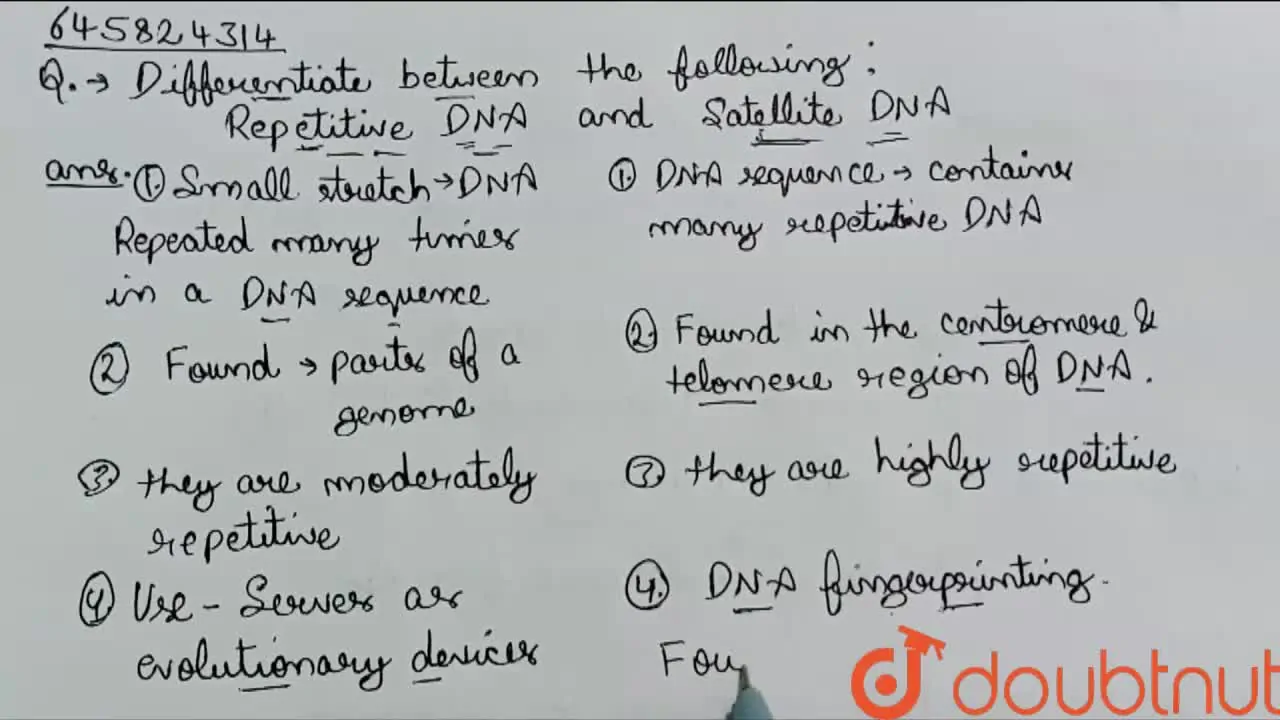 645824314
Q. → Differentiate between the following:
Repetitive DNA and Satellite DNA
ans. ① Small stretch → DNA
Repeated many times
in a DNA sequence
② Found → parts of a
genome
③ they are moderately
repetitive
④ Use - Serves as
evolutionary devices
① DNA sequence → contains
many repetitive DNA
② Found in the centromere &
telomere region of DNA.
③ they are highly repetitive
④ DNA fingerprinting.
Fou
doubtnut